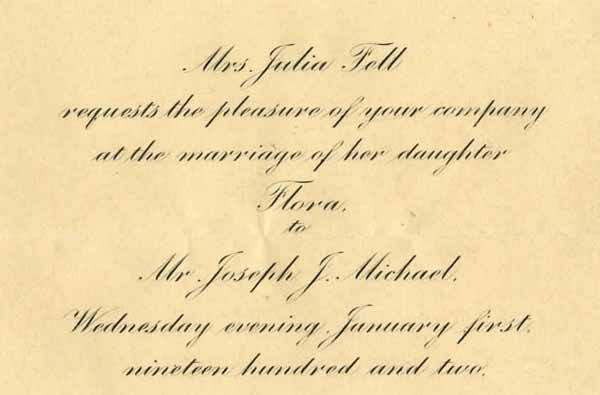 Mrs. Julia Fell
requests the pleasure of your company
at the marriage of her daughter
Flora,
to
Mr. Joseph J. Michael,
Wednesday evening, January first,
nineteen hundred and two,